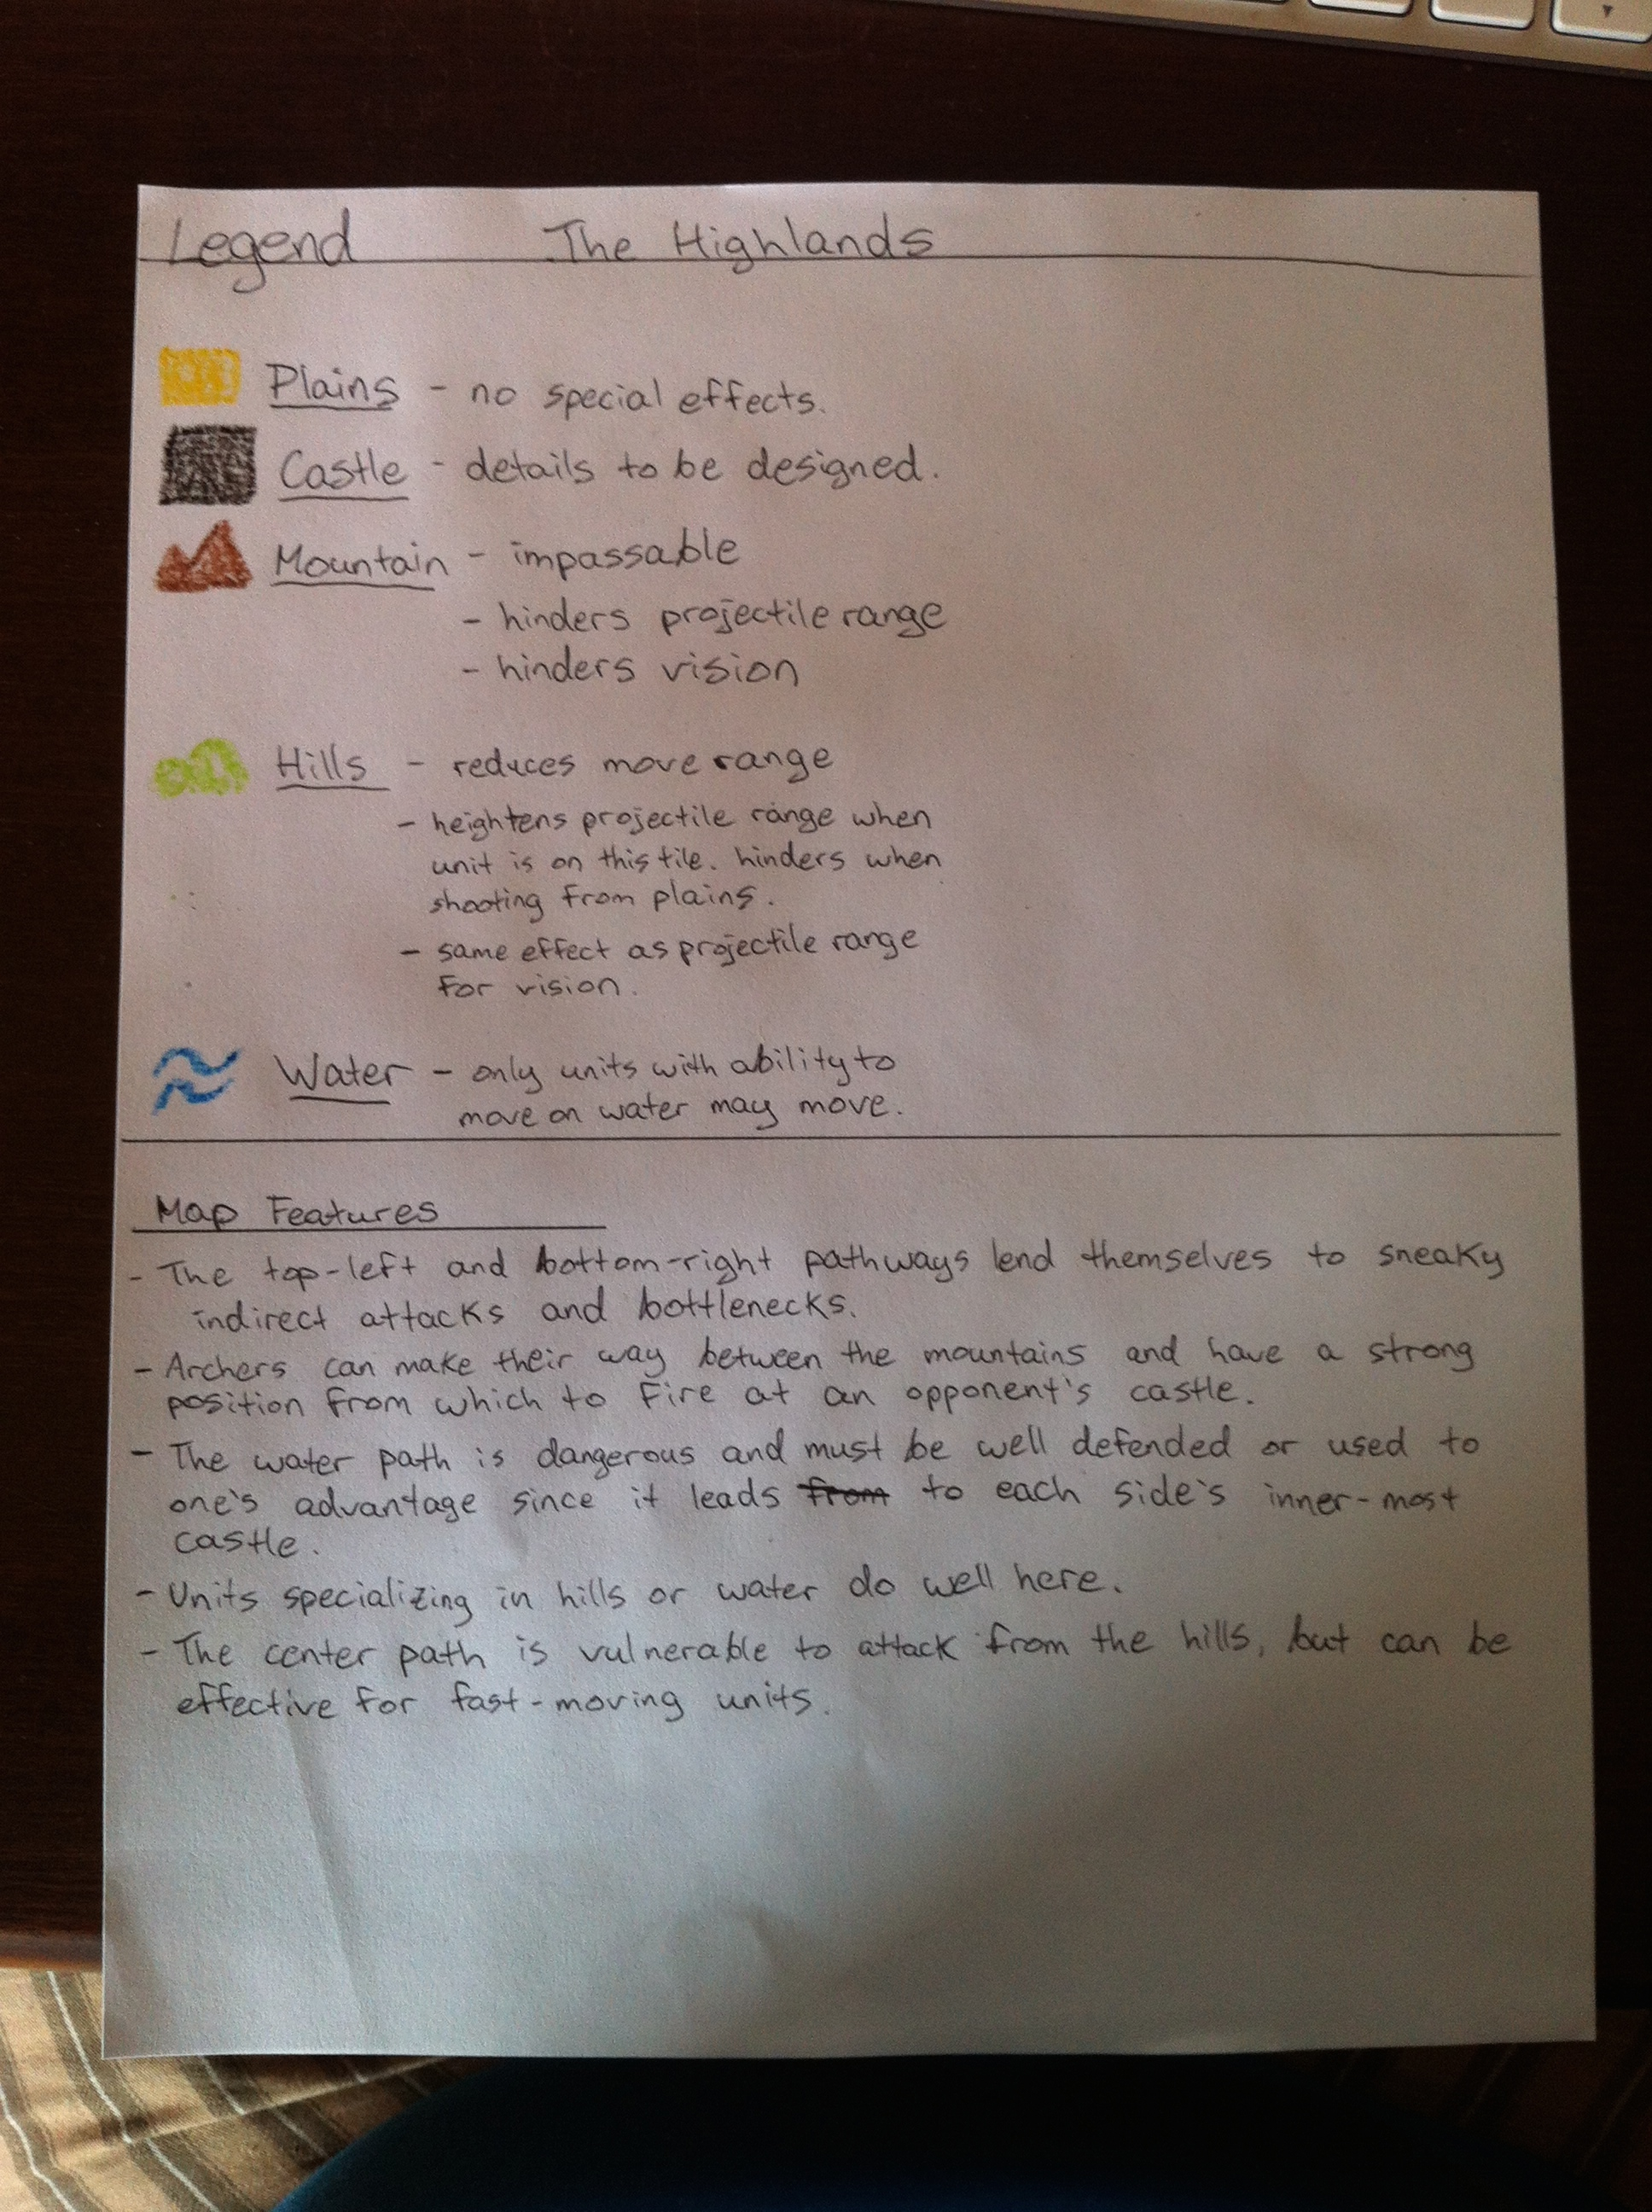 Legend The Highlands
Plains - no special effects.
Castle - details to be designed.
Mountain - impassable
- hinders projectile range
- hinders vision
Hills - reduces move range
- heightens projectile range when
unit is on this tile. hinders when
shooting from plains.
- same effect as projectile range
for vision.
Water - only units with ability to
move on water may move.
Map Features
- The top-left and bottom-right pathways lend themselves to sneaky
indirect attacks and bottlenecks.
- Archers can make their way between the mountains and have a strong
position from which to fire at an opponent's castle.
- The water path is dangerous and must be well defended or used to
one's advantage since it leads from to each side's inner-most
castle.
- Units specializing in hills or water do well here.
- The center path is vulnerable to attack from the hills, but can be
effective for fast-moving units.